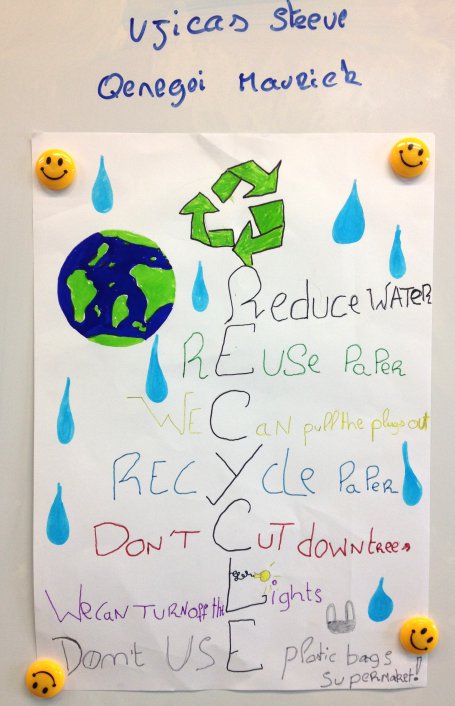 Ujicas Steeve
Qenegoi Maurick
Reduce WATER
REUSE PaPER
WE CaN pull the plugs out
RECYcLe PaPER
DON'T CUT down trees
We can TURN off the Lights
Don't USE plastic bags
supermaket!